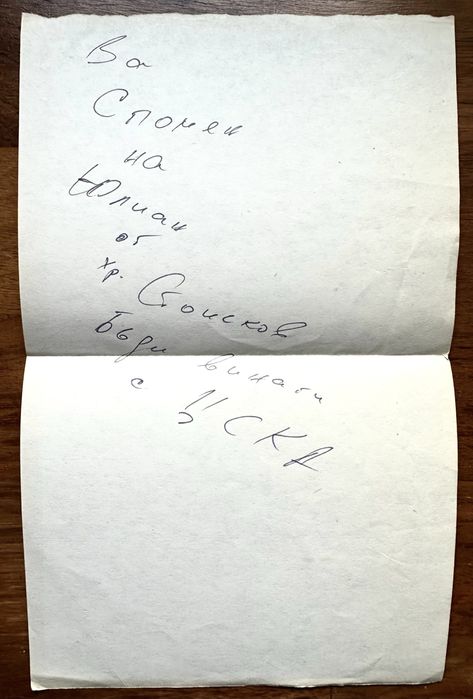 За
Спомен
на
Юлиан
от
хр. Стоичков
Бъди винаги
с ЦСКА